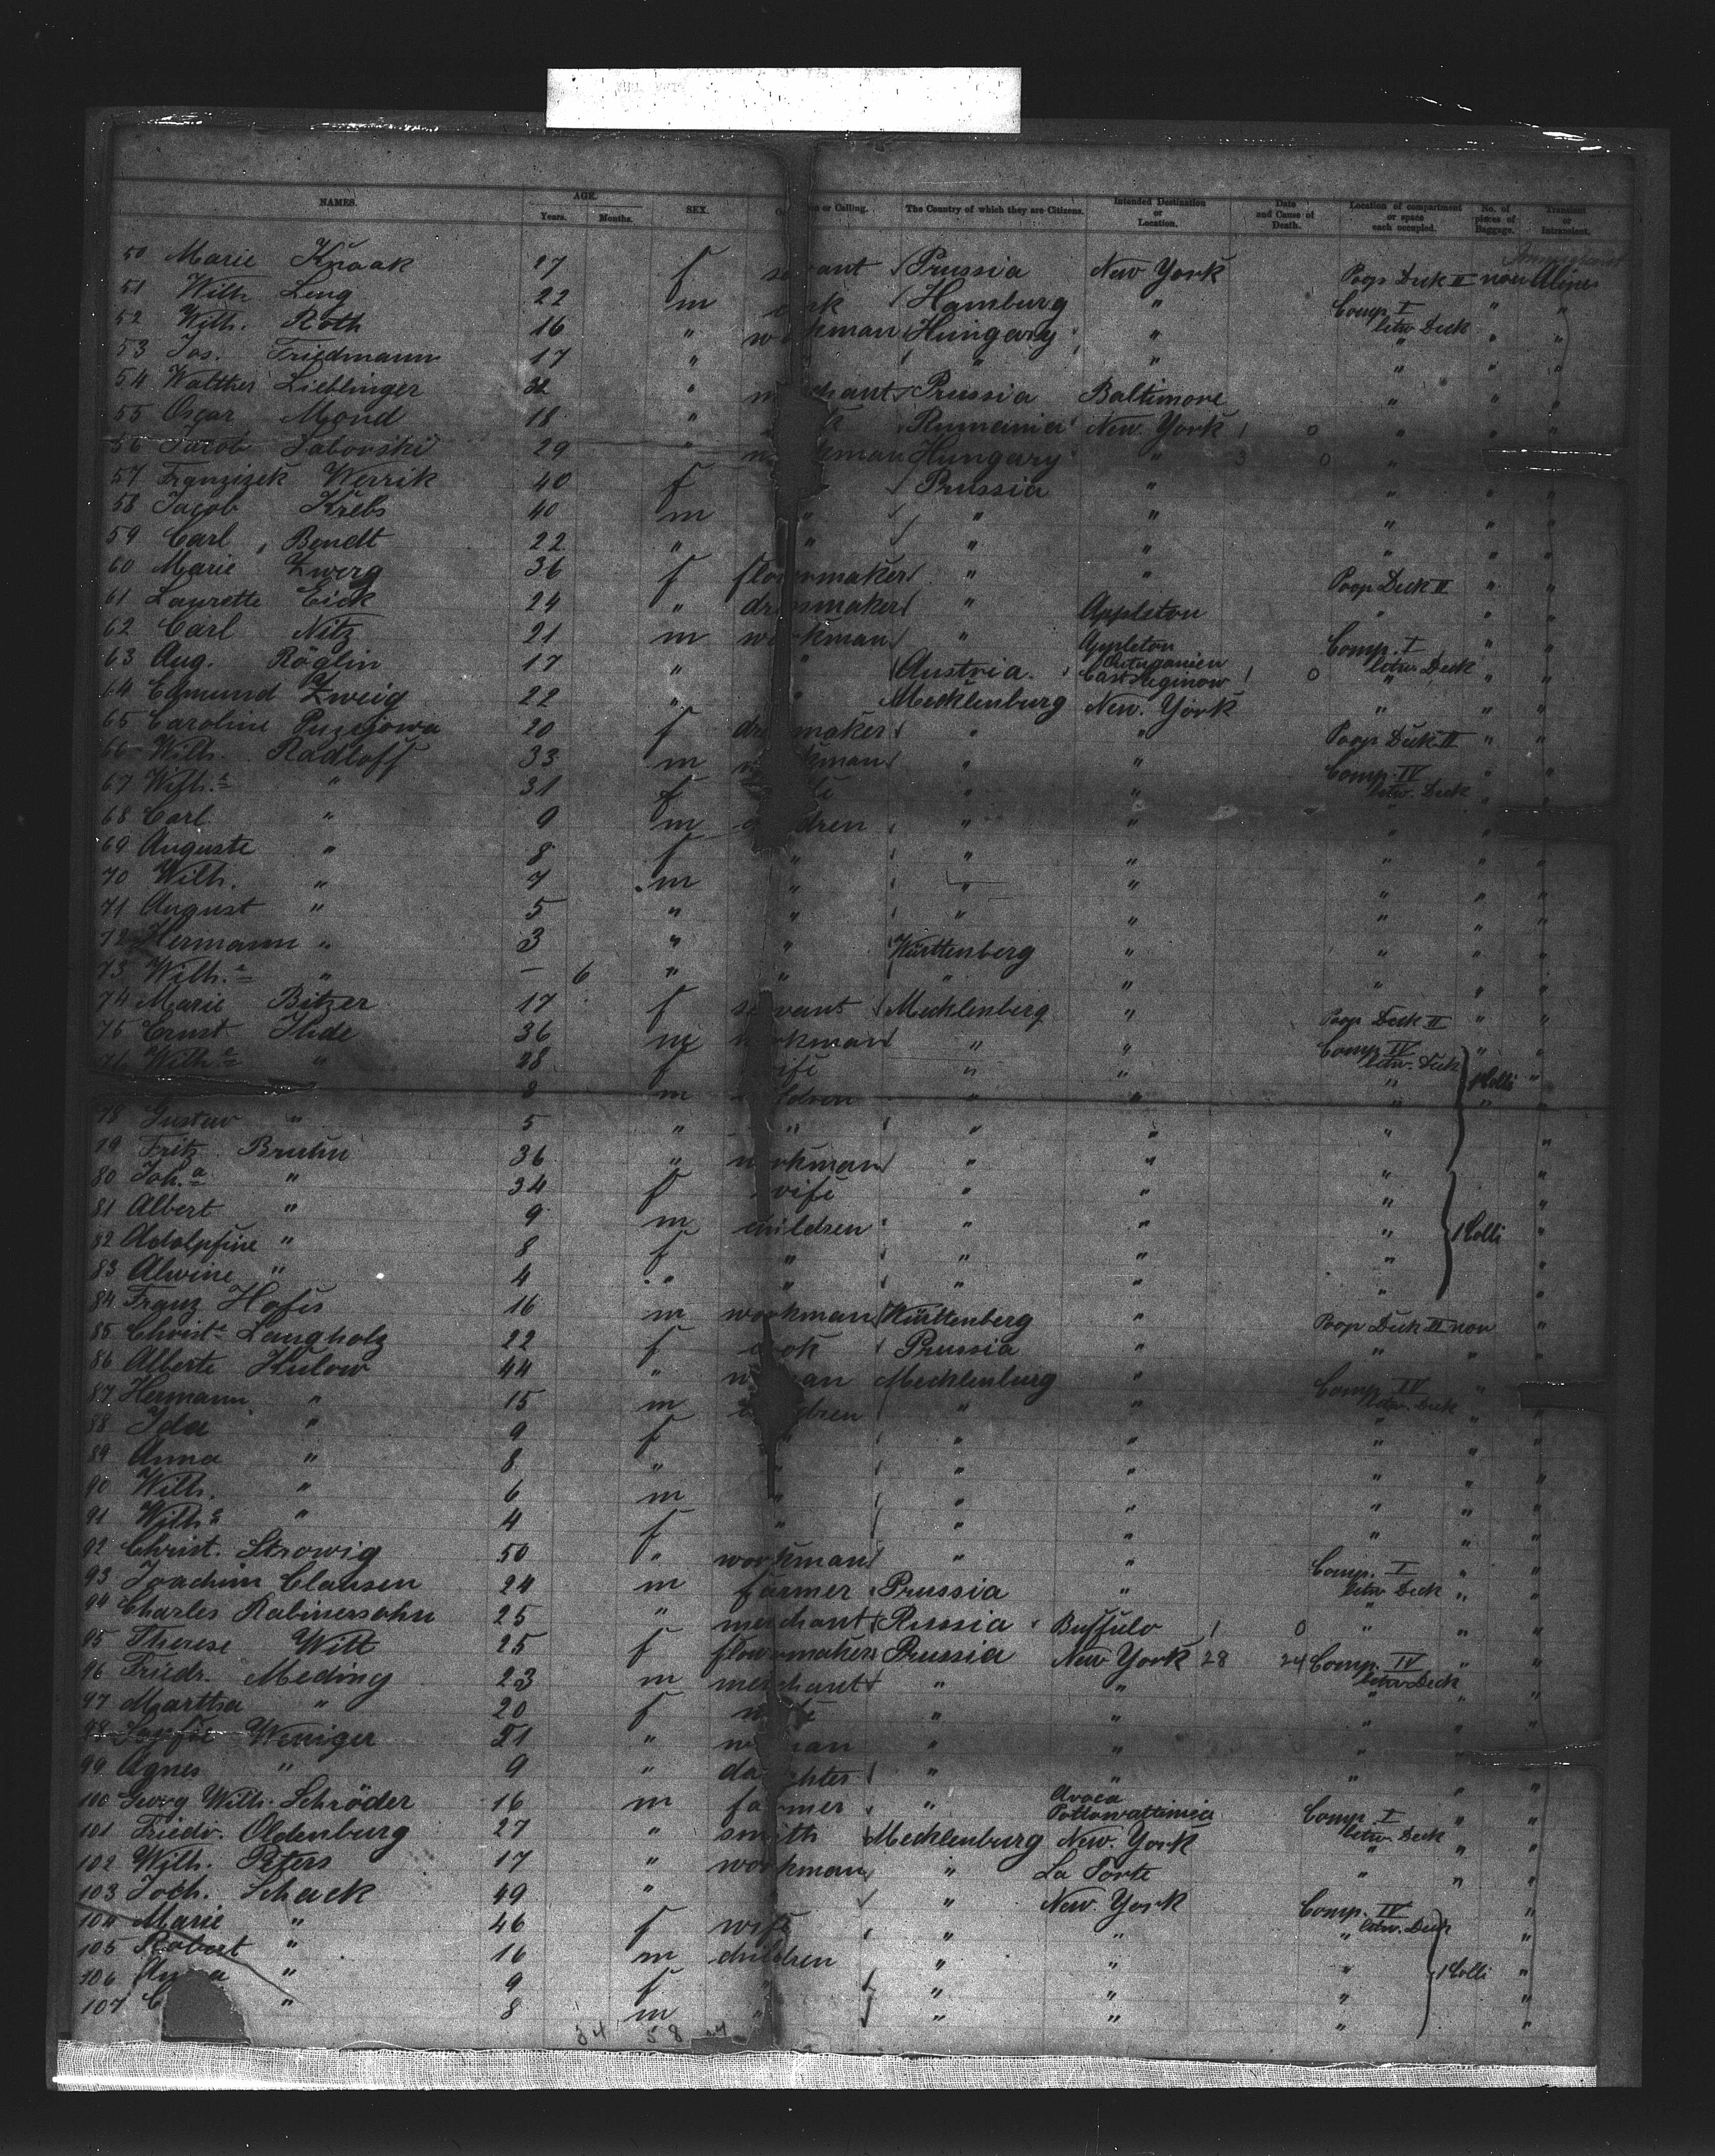 NAMES. AGE. Years. Months. SEX. or Calling. The Country of which they are Citizens. Intended Destination or Location. Date and Cause of Death. Location of compartment or space each occupied. No. of pieces of Baggage. Transient or Intransient.
50 Marie Knaak 27 f servant Prussia New York Poop Deck II non
51 Wilh Leng 22 m Hamburg " Comp. I betw Deck " "
52 Wilh. Roth 16 " workman Hungary " " " "
53 Jos. Friedmann 17 " " " " " " "
54 Walther Lieblinger 32 " merchant Prussia Baltimore " " "
55 Oscar Mond 18 " Rumainia New York 1 0 " " "
56 Jacob Sabovski 29 " workman Hungary " 3 0 "
57 Franzizek Werrik 40 f Prussia " " " "
58 Jacob Krebs 40 m " " " " " "
59 Carl Bendt 22 " " " " " " "
60 Marie Zwerg 36 f flowrmaker " " Poop Deck II " "
61 Laurette Eick 24 " dressmaker " Appleton " " "
62 Carl Nitz 21 m workman " Appleton Comp. I betw Deck " "
63 Aug. Röglin 17 " " Austria 1 0 " " "
64 Edmund Zweig 22 " " Mecklenburg New York " " "
65 Caroline 20 f dressmaker " " Poop Deck II " "
66 Wilh. Radloff 33 m workman " " Comp. IV betw. Deck " "
67 Wilh.a " 31 f " " "
68 Carl " 9 m children " " " "
69 Auguste " 8 f " " " " " "
70 Wilh. " 7 m " " " " " "
71 August " 5 " " " " " " "
72 Hermann " 3 " " Württenberg " " " "
73 Wilh.a " — 6 " " " " " " "
74 Marie Bitzer 17 f servant Mecklenberg " Poop Deck II " "
75 Ernst Thide 36 m workman " " Comp IV betw. Deck " "
76 Wilh.a " 28 f wife " " " 1 Colli "
8 m children " " " " "
78 Gustav " 5 " " " " " "
79 Fritz Bruhn 36 " workman " " " "
80 Joh.a " 34 f wife " " " "
81 Albert " 9 m children " " " 1 Colli "
82 Adolphine " 8 f " " " " "
83 Alwine " 4 " " " " " "
84 Franz Hofis 16 m workman Württenberg " Poop Deck II non "
85 Christe Langholz 22 f cook Prussia " " " "
86 Alberte Kulow 44 " woman Mecklenburg " Comp IV betw. Deck "
87 Hermann " 15 m children " " " " "
88 Ida " 9 f " " " " " "
89 Anna " 8 " " " " " " "
90 Wilh. " 6 m " " " " " "
91 Wilh.a " 4 f " " " " " "
92 Christ. Strowig 50 " workman " " Comp. I betw Deck " "
93 Joachim Clausen 24 m farmer Prussia " " " "
94 Charles Rabinersohn 25 " merchant Russia Buffulo 1 0 " " "
95 Therese Witt 25 f flowrmaker Prussia New York 28 24 Comp. IV betw Deck " "
96 Friedr. Meding 23 m merchant " " " " "
97 Martha " 20 f wife " " " " "
98 Sophie Weniger 51 " woman " " "
99 Agnes " 9 " daughter " " " " "
100 Georg Wilh. Schröder 16 m farmer " Avoca Pottowattamica Comp. I betw. Deck " "
101 Friedr. Oldenburg 27 " smith Mecklenburg New York " " "
102 Wilh. Peters 17 " workman " La Porte " " "
103 Joch. Schack 49 " " New York Comp. IV betw. Deck "
104 Marie " 46 f wife " " " "
105 Robert " 16 m children " " " 1 Colli "
106 " 9 f " " " " "
107 C " 8 m " " " " "
34 58